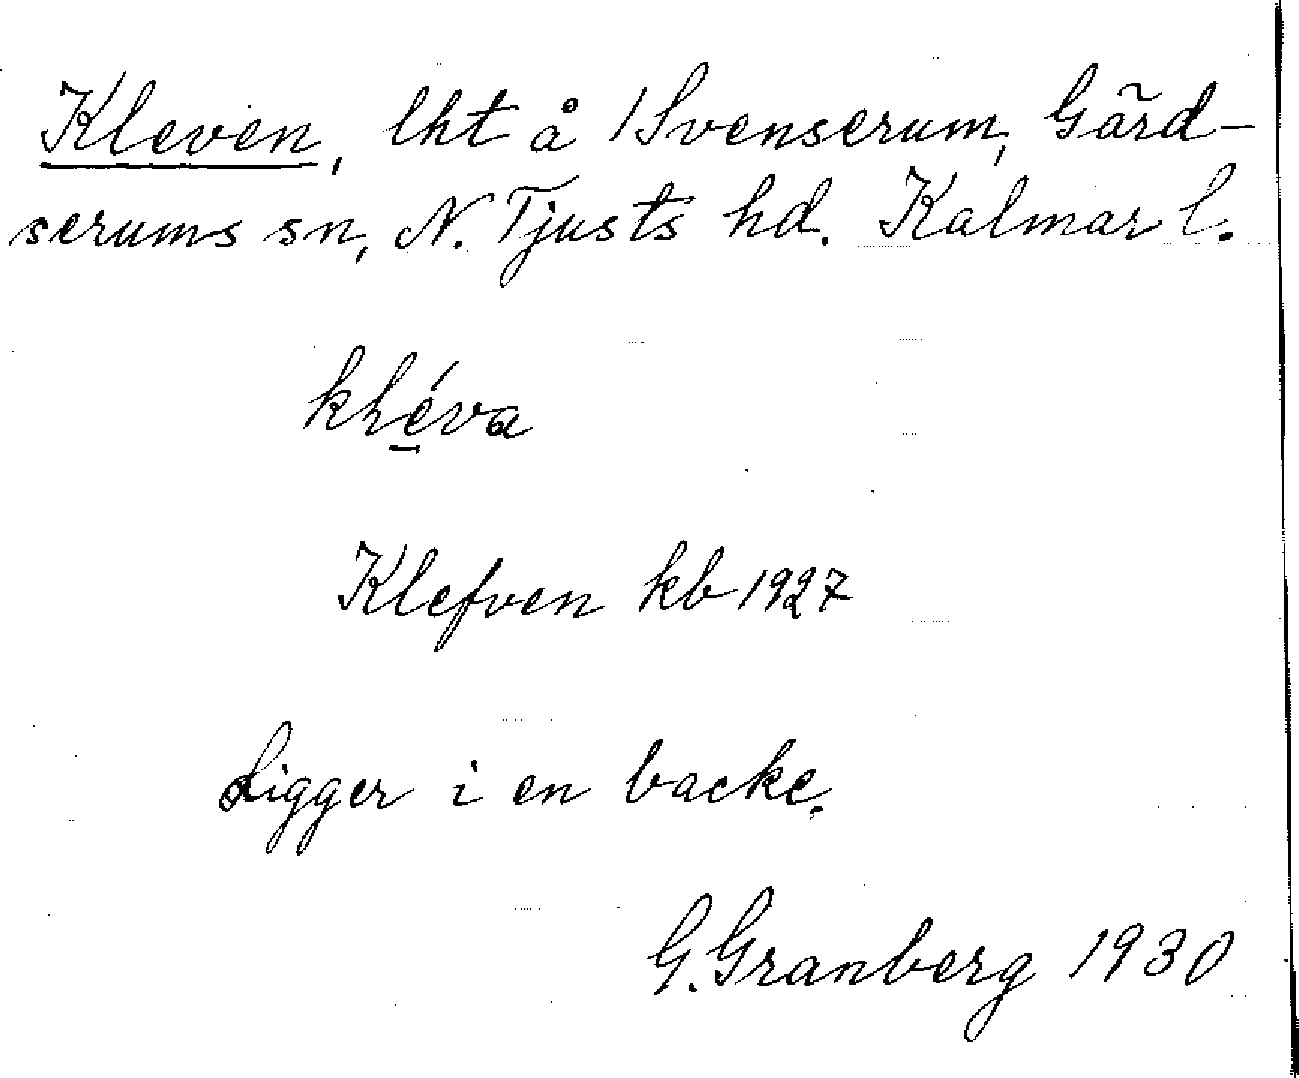 Kleven, lht å /Svenserum, Gärd-
serums sn, N. Tjusts hd. Kalmar l.
kléva
Klefven kb 1927
Ligger i en backe.
G. Granberg 1930